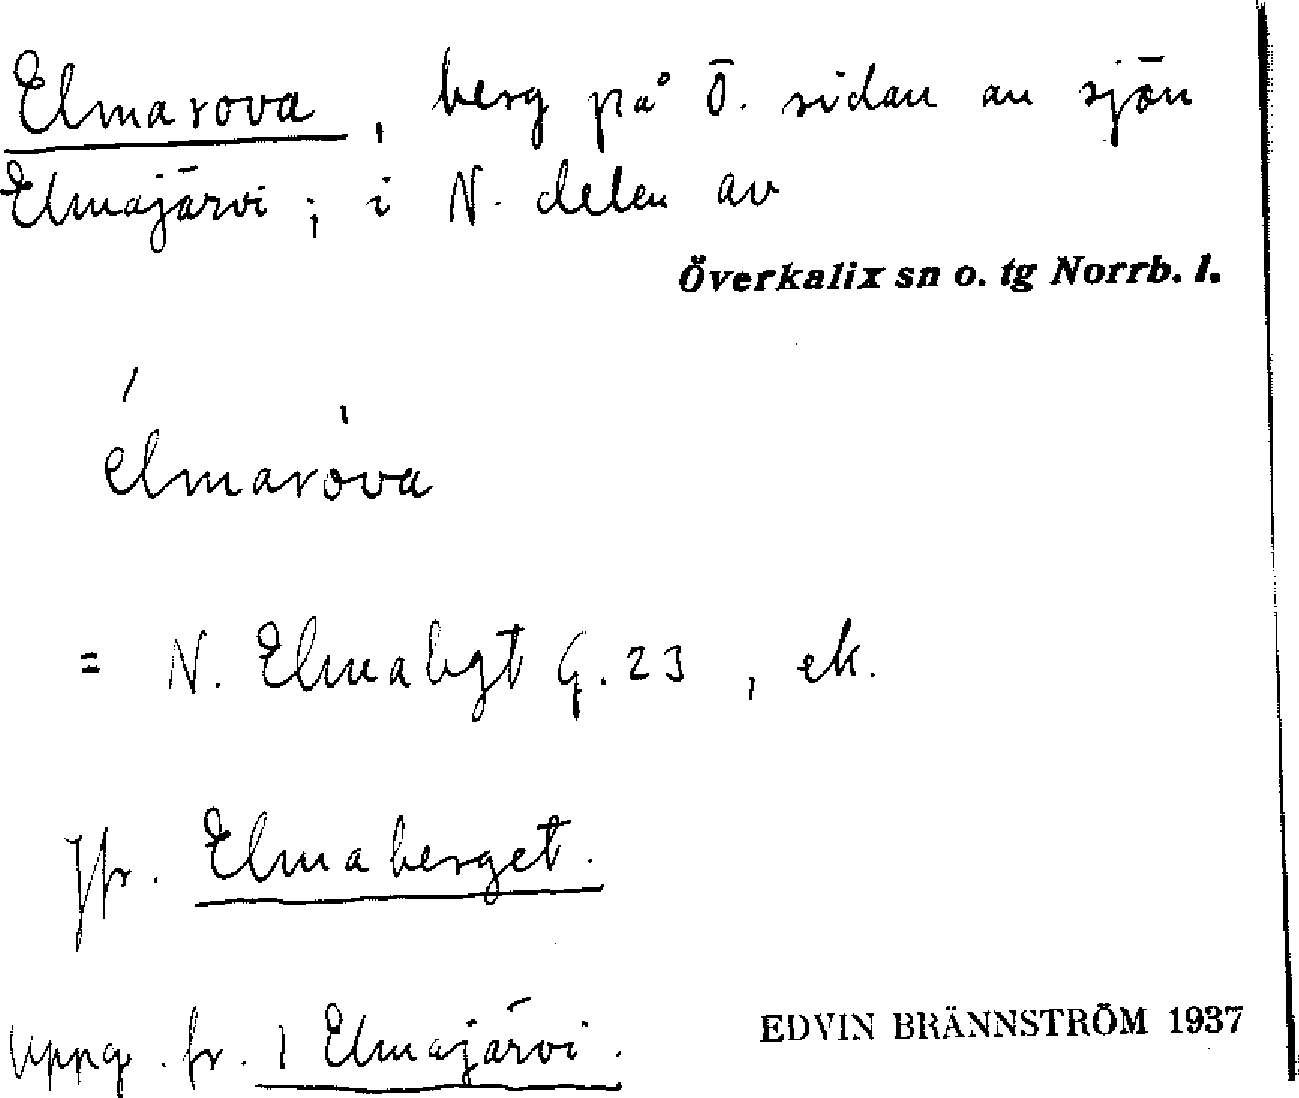 Elmarova, berg på Ö. sidan av sjön
Elmajärvi; i N. delen av
Överkalix sn o. tg Norrb. l.
élmaròva
= N. Elmabgt G. 23, ek.
Jfr. Elmaberget.
Uppg. fr. 1 Elmajärvi.
EDVIN BRÄNNSTRÖM 1937